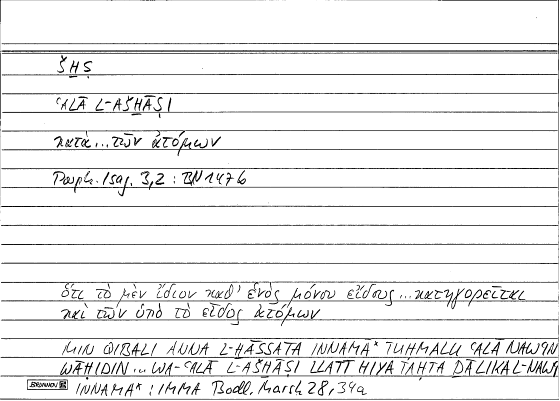 ŠḪṢ
ʿALĀ L-AŠḪĀṢI
κατὰ...τῶν ἀτόμων
Porph. Isag. 3,2 : BN 147b
ὅτι τὸ μὲν ἴδιον καθ' ἑνὸς μόνου εἴδους...κατηγορεῖται
καὶ τῶν ὑπὸ τὸ εἶδος ἀτόμων
MIN QIBALI ANNA L-ḪĀṢṢATA INNAMA* TUḤMALU ʿALĀ NAWʿIN
WĀḤIDIN... WA-ʿALĀ L-AŠḪĀṢI LLATĪ HIYA TAḤTA ḎĀLIKA L-NAWʿI
BRUNNEN INNAMA* : IMMA Bodl. Marsh 28,34a